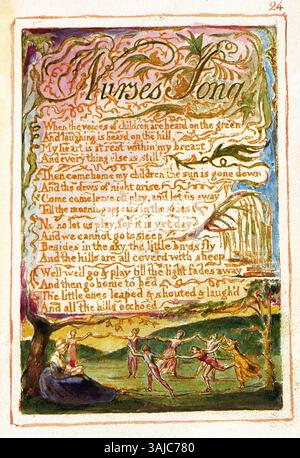 24
Nurses Song
When the voices of children are heard on the green
And laughing is heard on the hill
My heart is at rest within my breast
And every thing else is still
Then come home my children the sun is gone down
And the dews of night arise
Come come leave off play, and let us away
Till the morning appears in the skies
No no let us play, for it is yet day
And we cannot go to sleep
Besides in the sky, the little birds fly
And the hills are all coverd with sheep
Well well go & play till the light fades away
And then go home to bed
The little ones leaped & shouted & laugh'd
And all the hills ecchoed
alamy
Image ID: 3AJC780
www.alamy.com